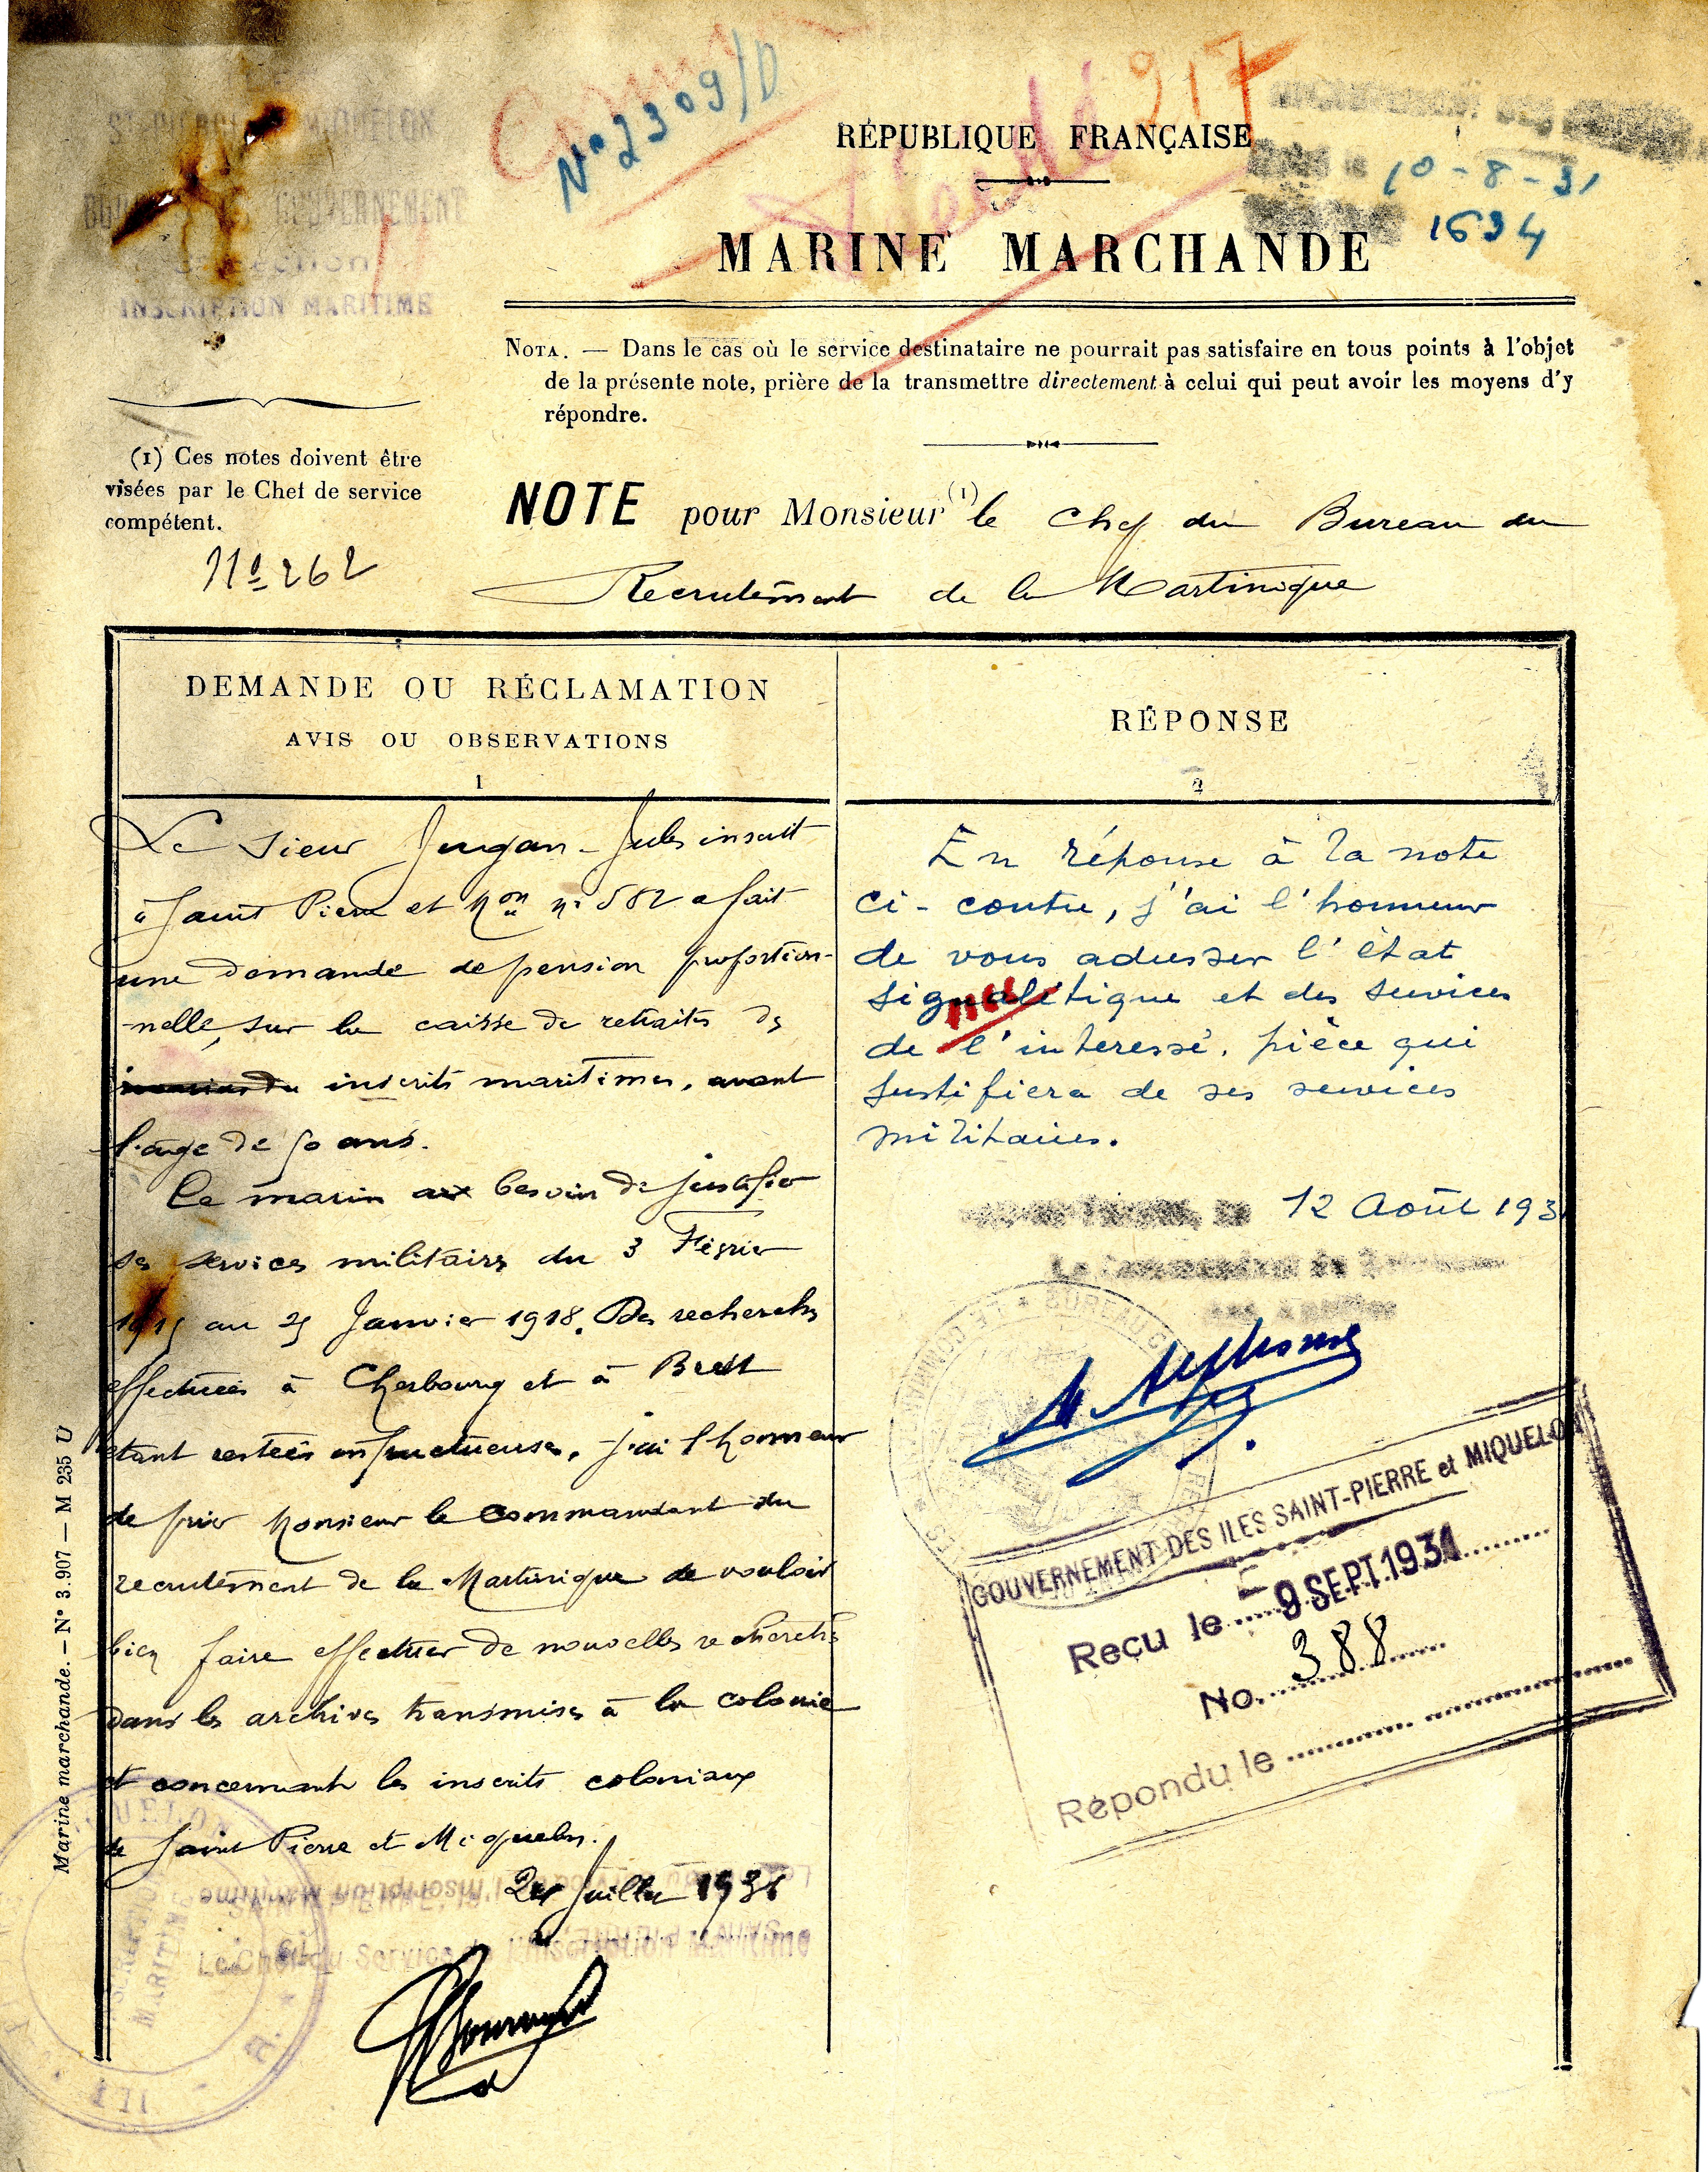 ST PIERRE MIQUELON
GOUVERNEMENT
Section
INSCRIPTION MARITIME
N° 2309/D
217
RÉPUBLIQUE FRANÇAISE
10-8-31
1634
MARINE MARCHANDE
NOTA. — Dans le cas où le service destinataire ne pourrait pas satisfaire en tous points à l'objet
de la présente note, prière de la transmettre directement à celui qui peut avoir les moyens d'y
répondre.
(1) Ces notes doivent être
visées par le Chef de service
compétent.
N° 262
NOTE pour Monsieur (1) le Chef du Bureau du
Recrutement de la Martinique
DEMANDE OU RÉCLAMATION
AVIS OU OBSERVATIONS
1
Le sieur Jugan Jules inscrit
à Saint Pierre et Mon n° 582 a fait
une demande de pension proportion-
nelle, sur la caisse de retraites des
inscrits maritimes, avant
l'âge de 50 ans.
Ce marin a besoin de justifier
ses services militaires du 3 Février
1915 au 25 Janvier 1918. Des recherches
effectuées à Cherbourg et à Brest
étant restées infructueuses, j'ai l'honneur
de prier Monsieur le Commandant du
recrutement de la Martinique de vouloir
bien faire effectuer de nouvelles recherches
dans les archives transmises à la colonie
et concernant les inscrits coloniaux
de Saint Pierre et Miquelon.
SAINT-PIERRE, le 24 Juillet 1931
Le Chef du Service de l'Inscription Maritime
RÉPONSE
2
En réponse à la note
ci-contre, j'ai l'honneur
de vous adresser l'état
signalétique et des services
de l'interessé, pièce qui
justifiera de ses services
militaires.
12 Août 193
Le Commandant du
GOUVERNEMENT DES ILES SAINT-PIERRE et MIQUELON
Reçu le 9 SEPT. 1931
No. 388
Répondu le
Marine marchande. — N° 3.907 — M 235 U
INSCRIPTION MARITIME